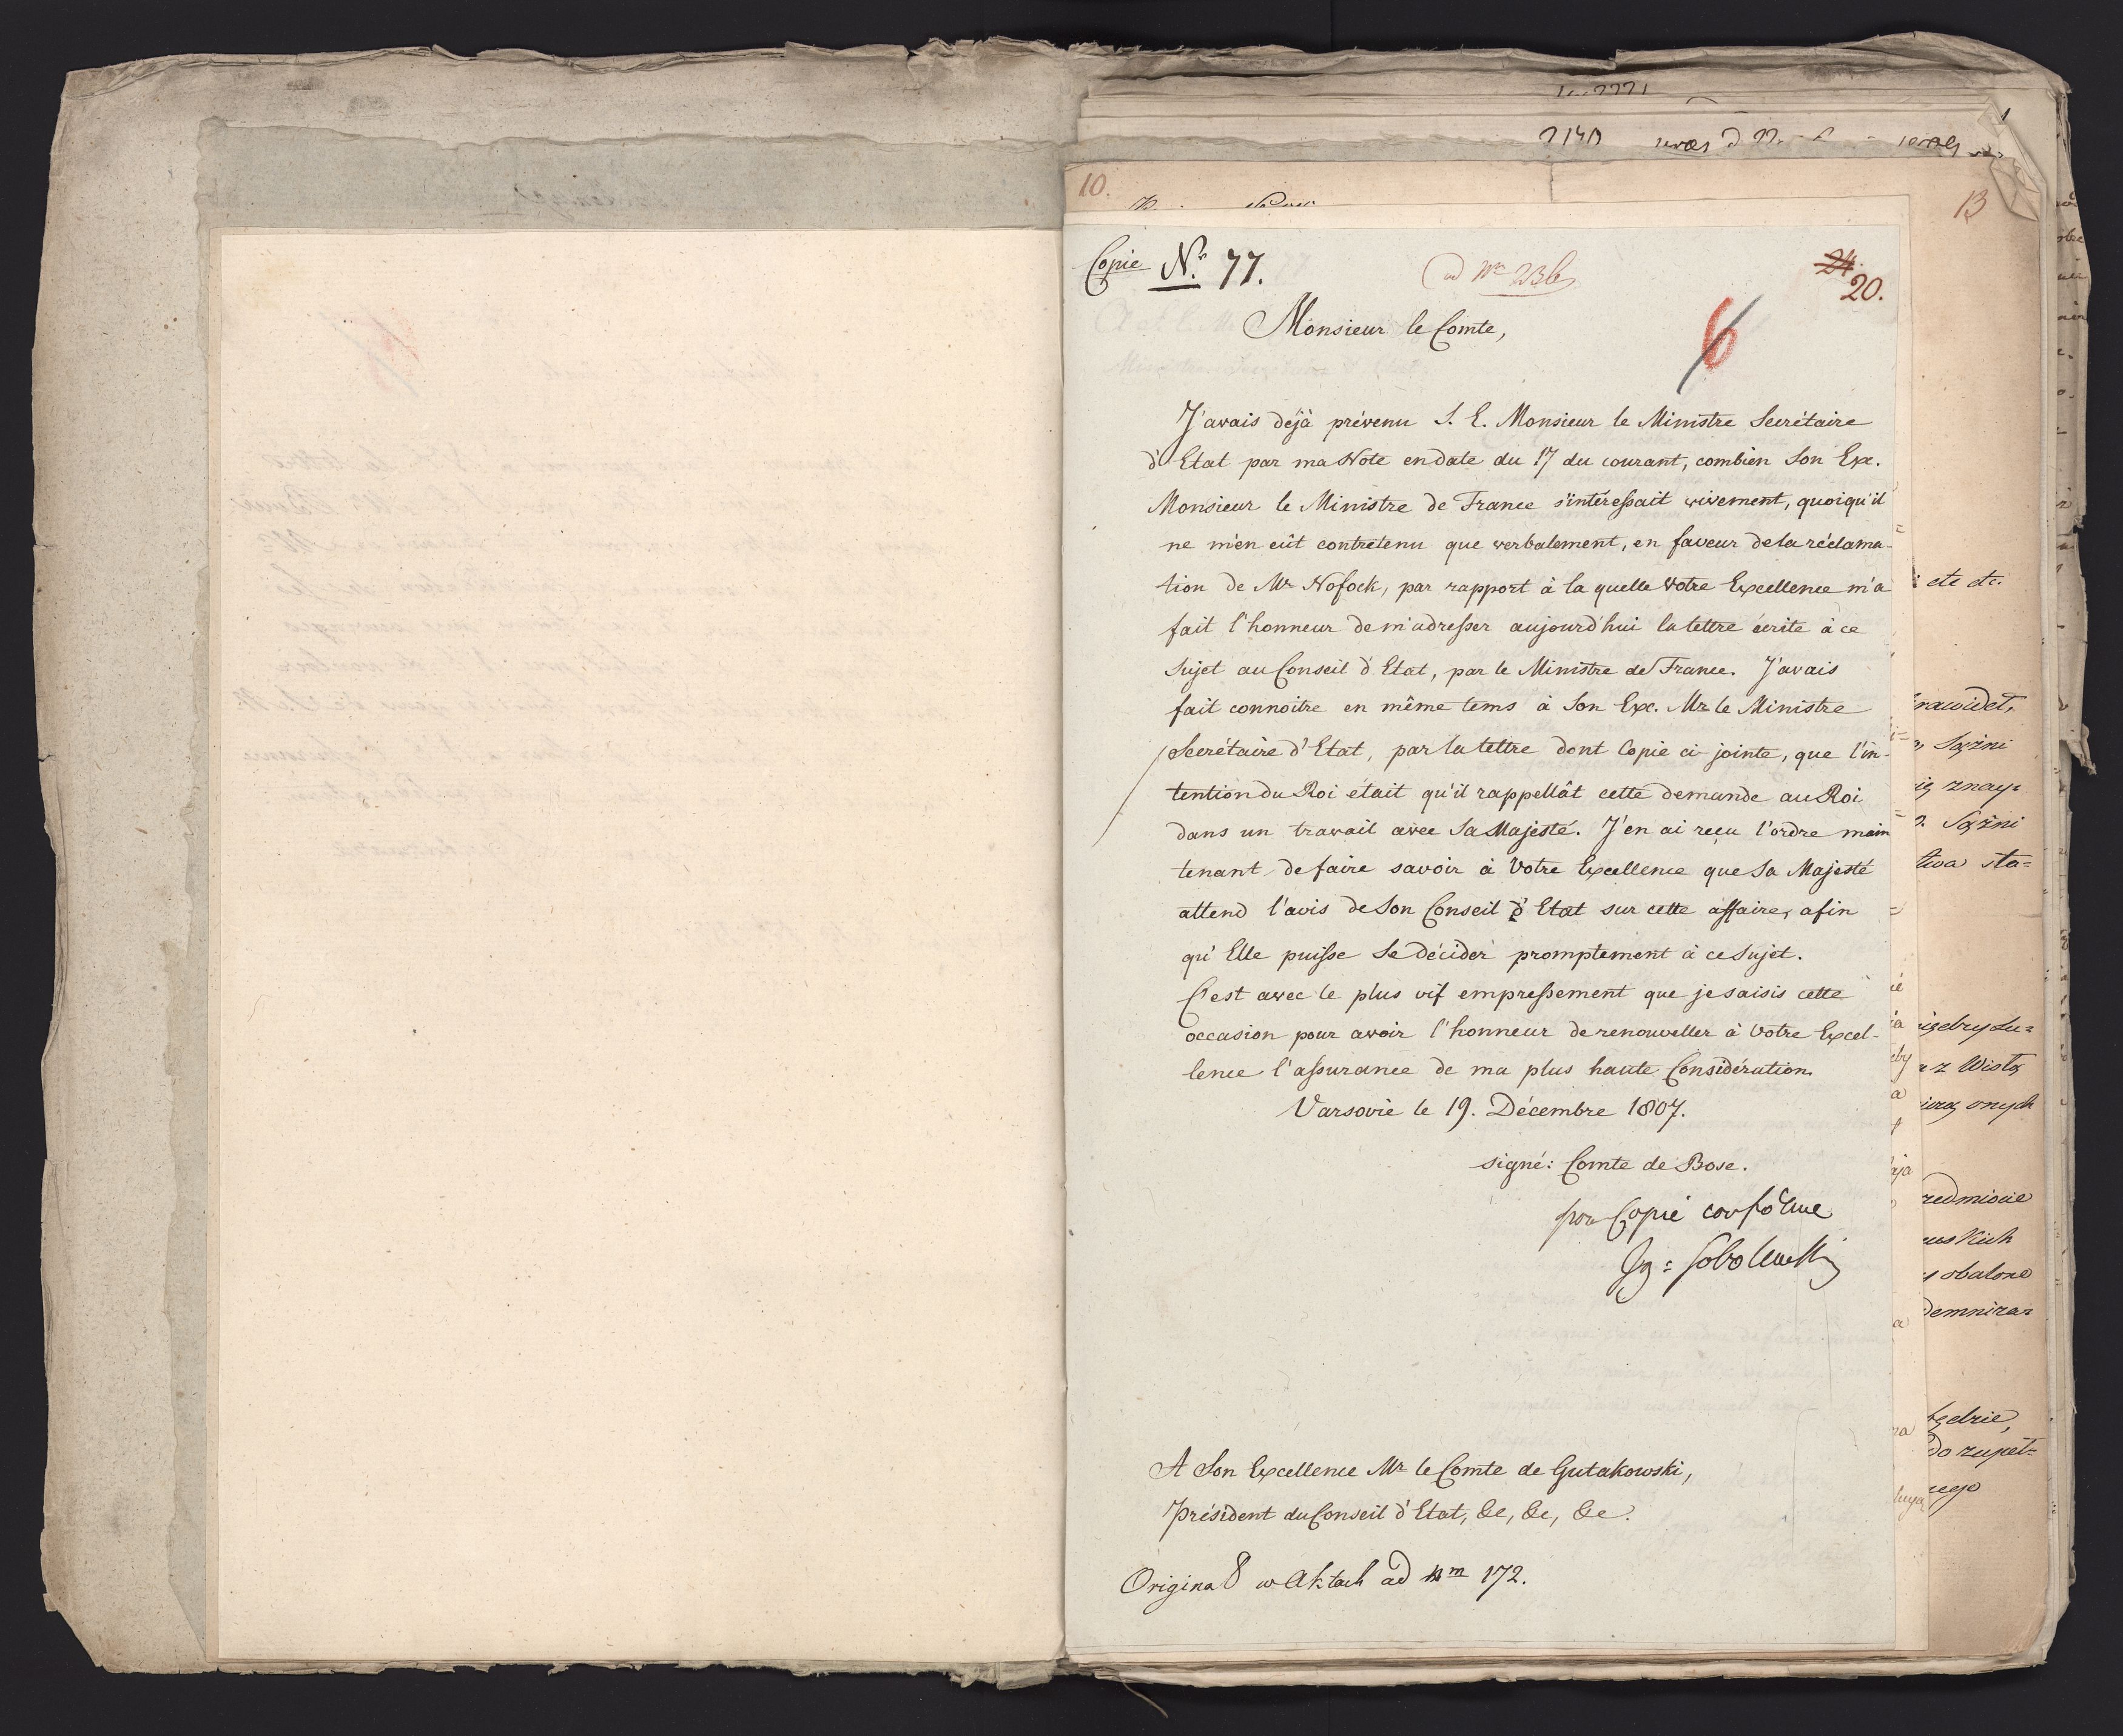 10.
13
Copie N.º 77.
ad Nr 236
24.
20.
6
Monsieur le Comte,
J'avais déjà prévenu S. E. Monsieur le Ministre Secrétaire
d'Etat par ma Note en date du 17 du courant, combien Son Exc.
Monsieur le Ministre de France s'intéressait vivement, quoiqu'il
ne m'en eût contretenu que verbalement, en faveur de la réclama-
tion de Mr Nofock, par rapport à la quelle Votre Excellence m'a
fait l'honneur de m'adresser aujourd'hui la lettre écrite à ce
Sujet au Conseil d'Etat, par le Ministre de France. J'avais
fait connoitre en même tems à Son Exc. Mr le Ministre
Secrétaire d'Etat, par la lettre dont Copie ci-jointe, que l'in-
tention du Roi était qu'il rappellât cette demande au Roi
dans un travail avec Sa Majesté. J'en ai reçu l'ordre main
tenant de faire savoir à Votre Excellence que Sa Majesté
attend l'avis de Son Conseil d'Etat sur cette affaire, afin
qu'Elle puisse Se décider promptement à ce Sujet.
C'est avec le plus vif empressement que je saisis cette
occasion pour avoir l'honneur de renouveller à Votre Excel-
lence l'assurance de ma plus haute Considération.
Varsovie le 19. Décembre 1807.
signé: Comte de Bose.
pour Copie conforme
Ig: Sobolewski
A Son Excellence Mr le Comte de Gutakowski,
Président du Conseil d'Etat, &c, &c, &c.
Original w Aktach ad Nm 172.
etc etc.
Sążni
znay=
Sążni
sta=
z Wisłą
onych